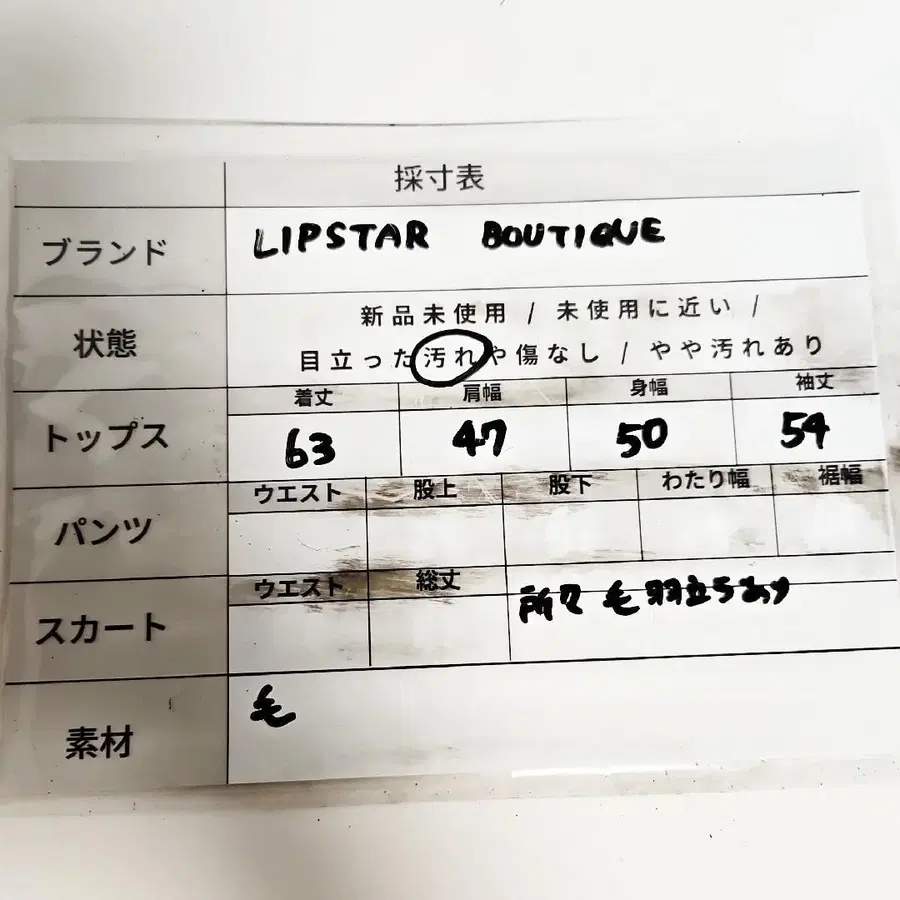 採寸表
ブランド LIPSTAR BOUTIQUE
状態 新品未使用 / 未使用に近い /
目立った汚れや傷なし / やや汚れあり
着丈 肩幅 身幅 袖丈
トップス 63 47 50 54
ウエスト 股上 股下 わたり幅 裾幅
パンツ
ウエスト 総丈 所々毛羽立ちあり
スカート
素材 毛